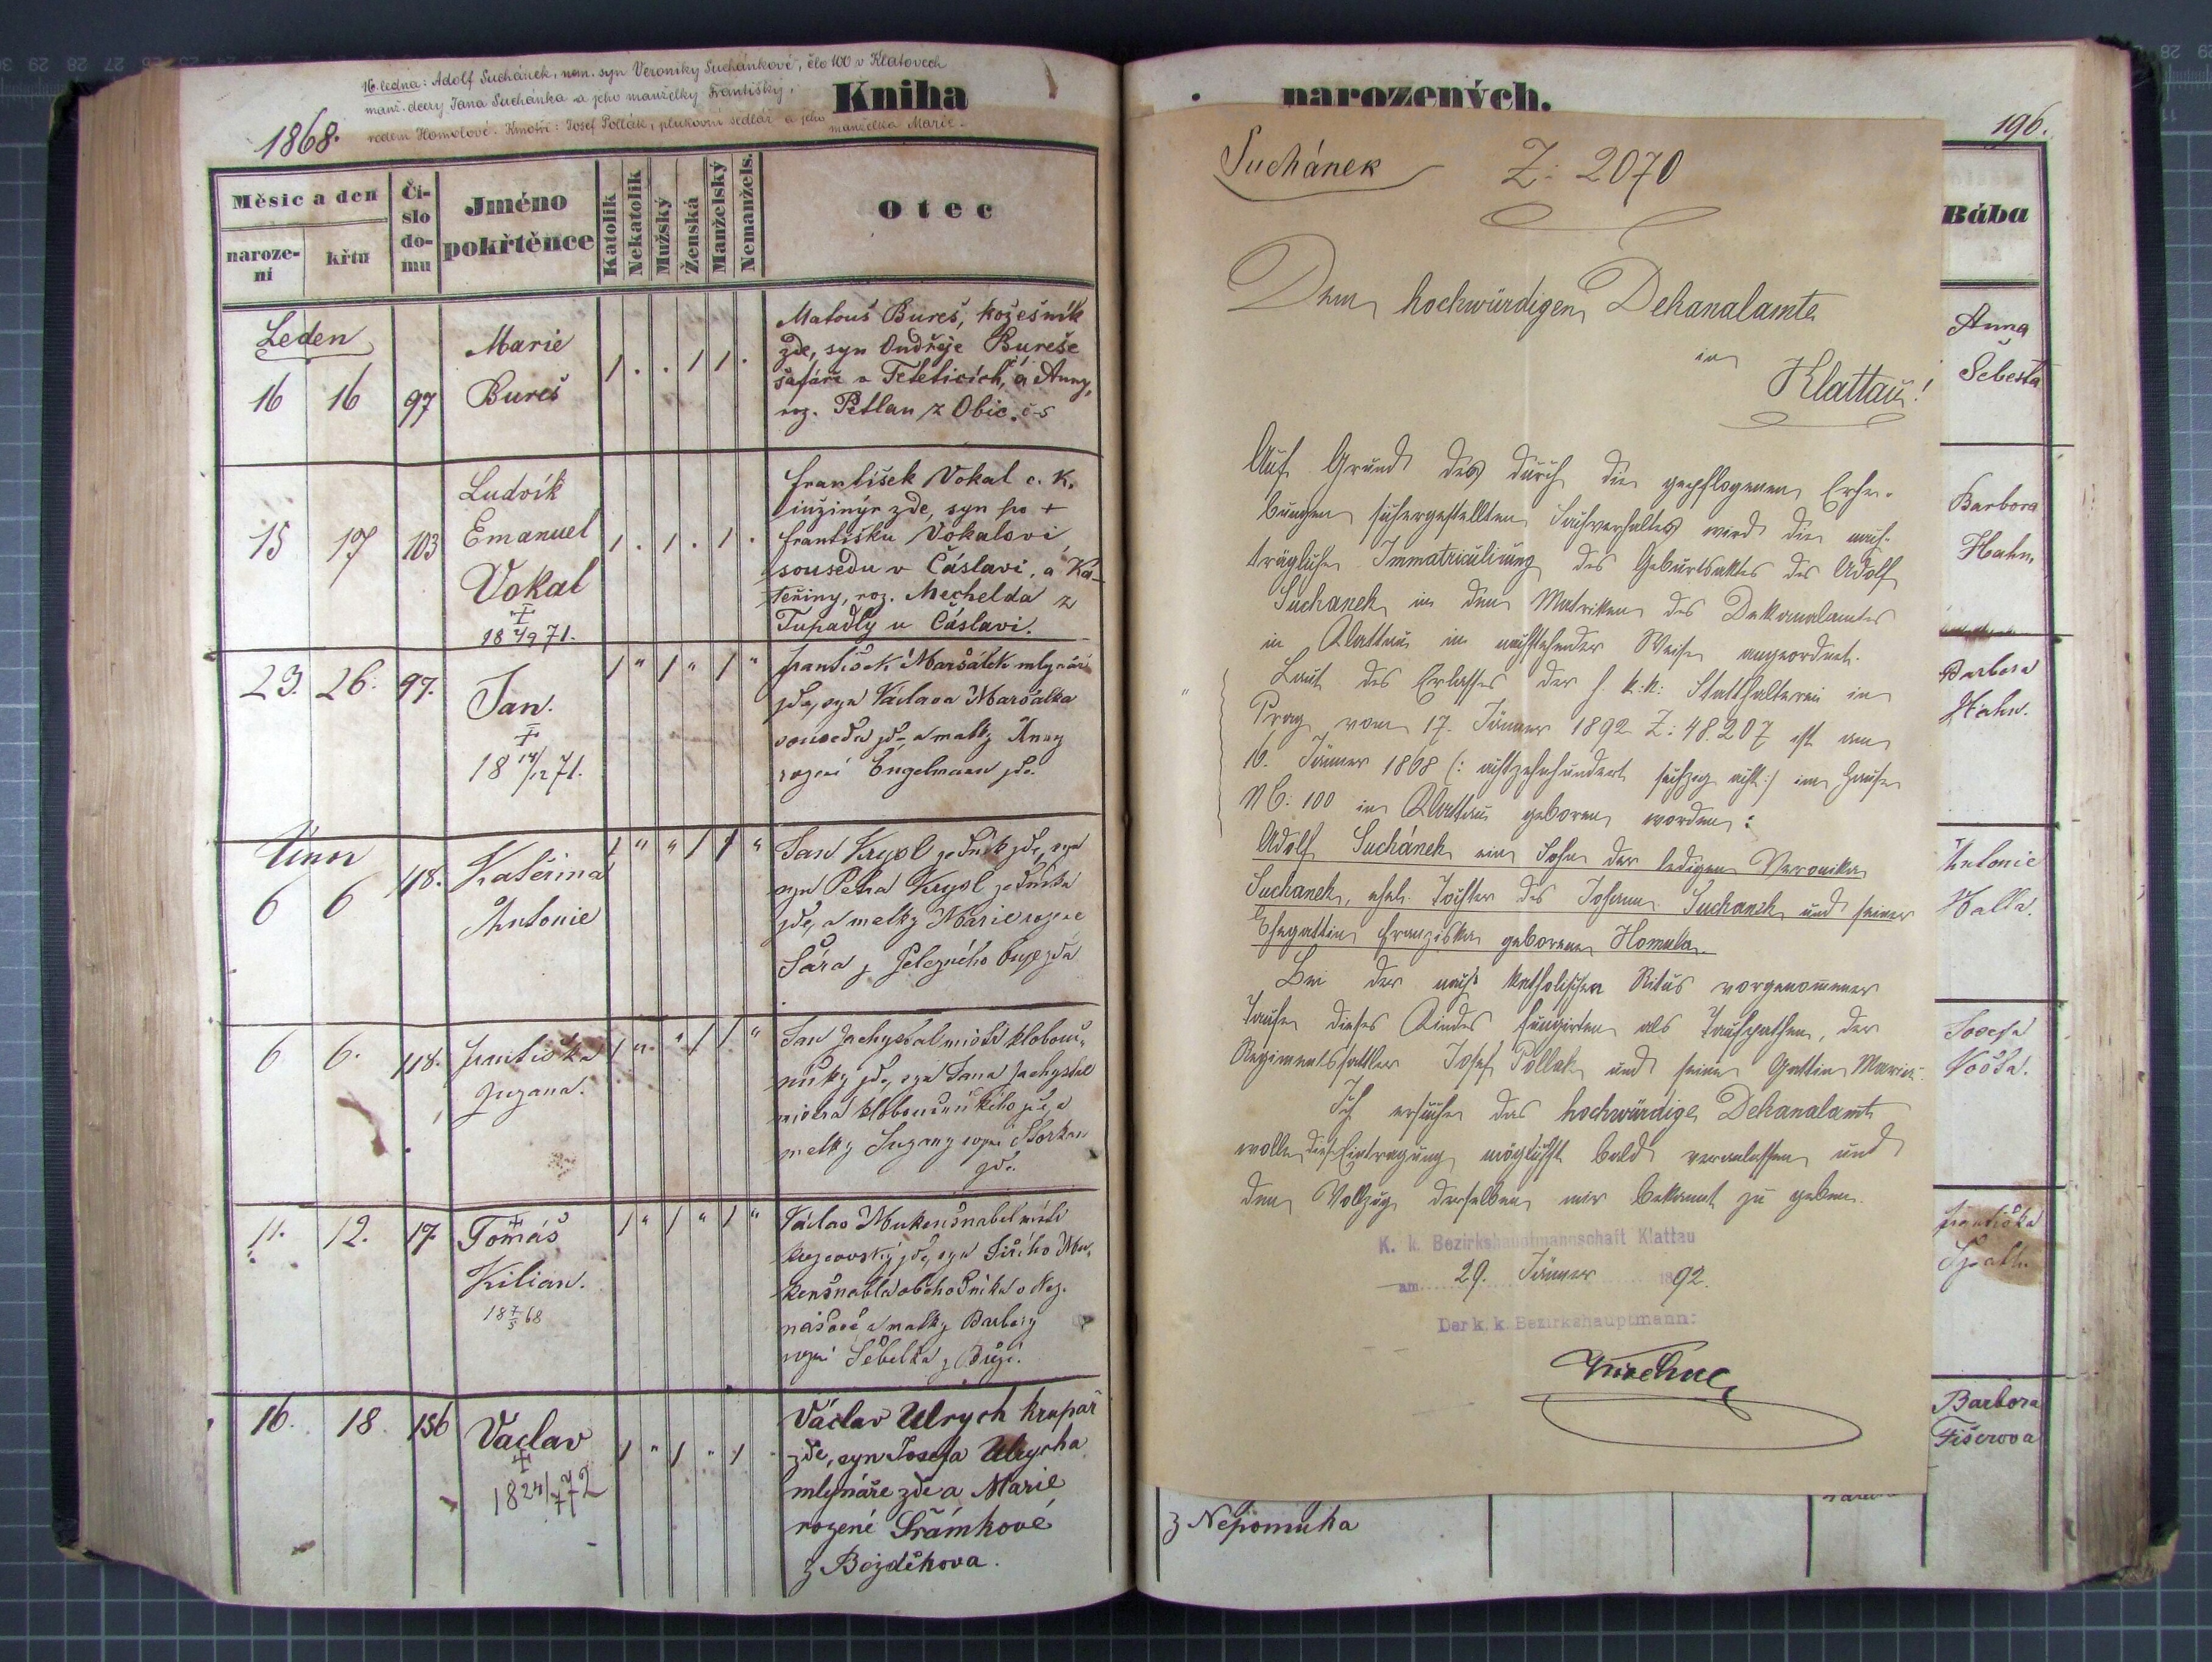 16. ledna: Adolf Suchánek, nem. syn Veroniky Suchánkové, čís 100 v Klatovech
manž. dcery Jana Suchánka a jeho manželky Františky,
rodem Homolové. Kmotři: Josef Pollák, plukovní sedlář a jeho manželka Marie.
1868.
Kniha
Měsíc a den
narození
křtu
Číslo domu
Jméno pokřtěnce
Katolík
Nekatolík
Mužský
Ženská
Manželský
Nemanžels.
Otec
Leden
16 16 97
Marie
Bureš
1 . . 1 1 .
Matouš Bureš, kožešník
zde, syn Ondřeje Bureše
šafáře v Teteticích, a Anny,
roz. Petlan z Obic.
15 17 103
Ludvík
Emanuel
Vokal
18 4/9 71.
1 . 1 . 1 .
František Vokal c. k.
inžinýr zde, syn po +
Františku Vokalovi
sousedu v Čáslavi, a Ka-
teřiny, roz. Mechelda z
Tupadly u Čáslavi.
23. 26. 97.
Jan.
18 14/12 71.
1 " 1 " 1 "
František Maršálek mlynář
zde, syn Václava Maršálka
souseda zde, a matky Anny
rozené Engelmann zde.
Únor
6 6 118.
Kateřina
Antonie
1 " " 1 1 "
Jan Krysl
syn Petra Krysl
zde, a matky Marie rozené
Sára z
6 6. 118.
Františka
Zuzana.
1 " " 1 1 "
zde, syn Jana
matky Zuzany rozené
zde.
11. 12. 17.
Tomáš
Kilian.
18 7/5 68
1 " 1 " 1 "
Václav Mukenšnabel
zde, syn Jiřího Mu-
kenšnabla
a matky Barbory
rozené
16. 18. 156
Václav
18 24/7 72
1 " 1 " 1
Václav Ulrych krupař
zde, syn Josefa Ulrycha
mlynáře zde a Marie
rozené Šrámkové
z Bezděkova.
narozených.
196.
Suchánek Z: 2070
Dem hochwürdigen Dekanalamte
in
Klattau!
Auf Grund des durch die gepflogenen Erhe-
bungen sichergestellten Sachverhaltes wird die nach-
trägliche Immatriculirung des Geburtsaktes des Adolf
Suchanek in den Matriken des Dekanalamtes
in Klattau in nachstehender Weise angeordnet.
Laut des Erlasses der h. k. k. Statthalterei in
Prag vom 17. Jänner 1892 Z: 48.207 ist am
16. Jänner 1868 (: achtzehnhundert sechzig acht :) im Hause
NC: 100 in Klattau geboren worden:
Adolf Suchánek ein Sohn der ledigen Veronika
Suchanek, ehel. Tochter des Johann Suchanek und seiner
Ehegattin Franziska geborenen Homula.
Bei der nach katholischen Ritus vorgenommener
Taufe dieses Kindes fungirten als Taufpathen, der
Regimentssattler Josef Pollak und seine Gattin Marie.
Ich ersuche das hochwürdige Dekanalamt
wolle diese Eintragung möglichst bald veranlassen und
den Vollzug derselben mir bekannt zu geben.
K. k. Bezirkshauptmannschaft Klattau
am 29. Jänner 1892.
Der k. k. Bezirkshauptmann:
Bába
Anna
Šebesta
Barbora
Hahn
Barbora
Hahn.
Antonie
Halla.
Josefa
Františka
Barbora
Fišerova
z Nepomuka